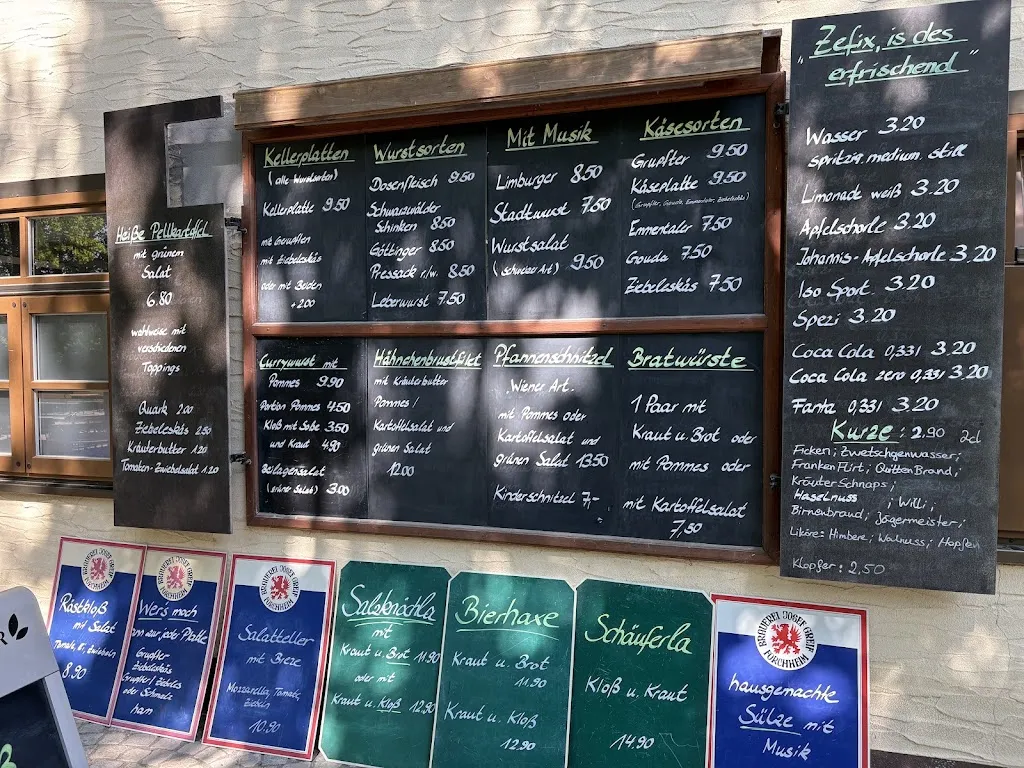 Heiße Pellkartoffel
mit grünen
Salat
6.80
wahlweise mit
verschiedenen
Toppings
Quark 2.00
Ziebeleskäs 2.50
Kräuterbutter 1.20
Tomaten-Zwiebelsalat 1.20
Kellerplatten
(alle Wurstsorten)
Kellerplatte 9.50
mit Gerupften
mit Ziebeleskäs
oder mit Beiden
+2.00
Wurstsorten
Dosenfleisch 9.50
Schwarzwälder
Schinken 8.50
Göttinger 8.50
Pressack r/w. 8.50
Leberwurst 7.50
Mit Musik
Limburger 8.50
Stadtwurst 7.50
Wurstsalat
(schweizer Art) 9.50
Käsesorten
Grupfter 9.50
Käseplatte 9.50
(Grupfter, Gouda, Emmentaler, Ziebeleskäs)
Emmentaler 7.50
Gouda 7.50
Ziebeleskäs 7.50
Currywurst mit
Pommes 9.90
Portion Pommes 4.50
Kloß mit Soße 3.50
und Kraut 4.90
Beilagensalat
(grüner Salat) 3.00
Hähnchenbrustfilet
mit Kräuterbutter
Pommes /
Kartoffelsalat und
grünen Salat
12.00
Pfannenschnitzel
"Wiener Art"
mit Pommes oder
Kartoffelsalat und
grünen Salat 13.50
Kinderschnitzel 7,-
Bratwürste
1 Paar mit
Kraut u. Brot oder
mit Pommes oder
mit Kartoffelsalat
7,50
"Zefix, is des
erfrischend"
Wasser 3.20
spritzig, medium, still
Limonade weiß 3.20
Apfelschorle 3.20
Johannis-Apfelschorle 3.20
Iso Sport 3.20
Spezi 3.20
Coca Cola 0,33l 3.20
Coca Cola zero 0,33l 3.20
Fanta 0,33l 3.20
Kurze: 2.90 2cl
Ficken; Zwetschgenwasser;
FrankenFlirt; QuittenBrand;
KräuterSchnaps;
Haselnuss ; Willi;
Birnenbrand; Jägermeister;
Liköre: Himbere; Walnuss; Hopfen
Klopfer: 2,50
BRAUEREI JOSEF GREIF
FORCHHEIM
Röstkloß
mit Salat
Tomate, Ei, Zwiebeln
8.90
BRAUEREI JOSEF GREIF
FORCHHEIM
Wer's moch
zu jeder Platte
Grupfter
Ziebeleskäs
Grupfter/Ziebeles
oder Schmalz
ham
BRAUEREI JOSEF GREIF
FORCHHEIM
Salatteller
mit Breze
Mozzarella, Tomate,
Zwiebeln
10.90
Salzknöchla
mit
Kraut u. Brot 11.90
oder mit
Kraut u. Kloß 12.90
Bierhaxe
Kraut u. Brot
11.90
Kraut u. Kloß
12.90
Schäuferla
Kloß u. Kraut
14.90
BRAUEREI JOSEF GREIF
FORCHHEIM
hausgemachte
Sülze mit
Musik